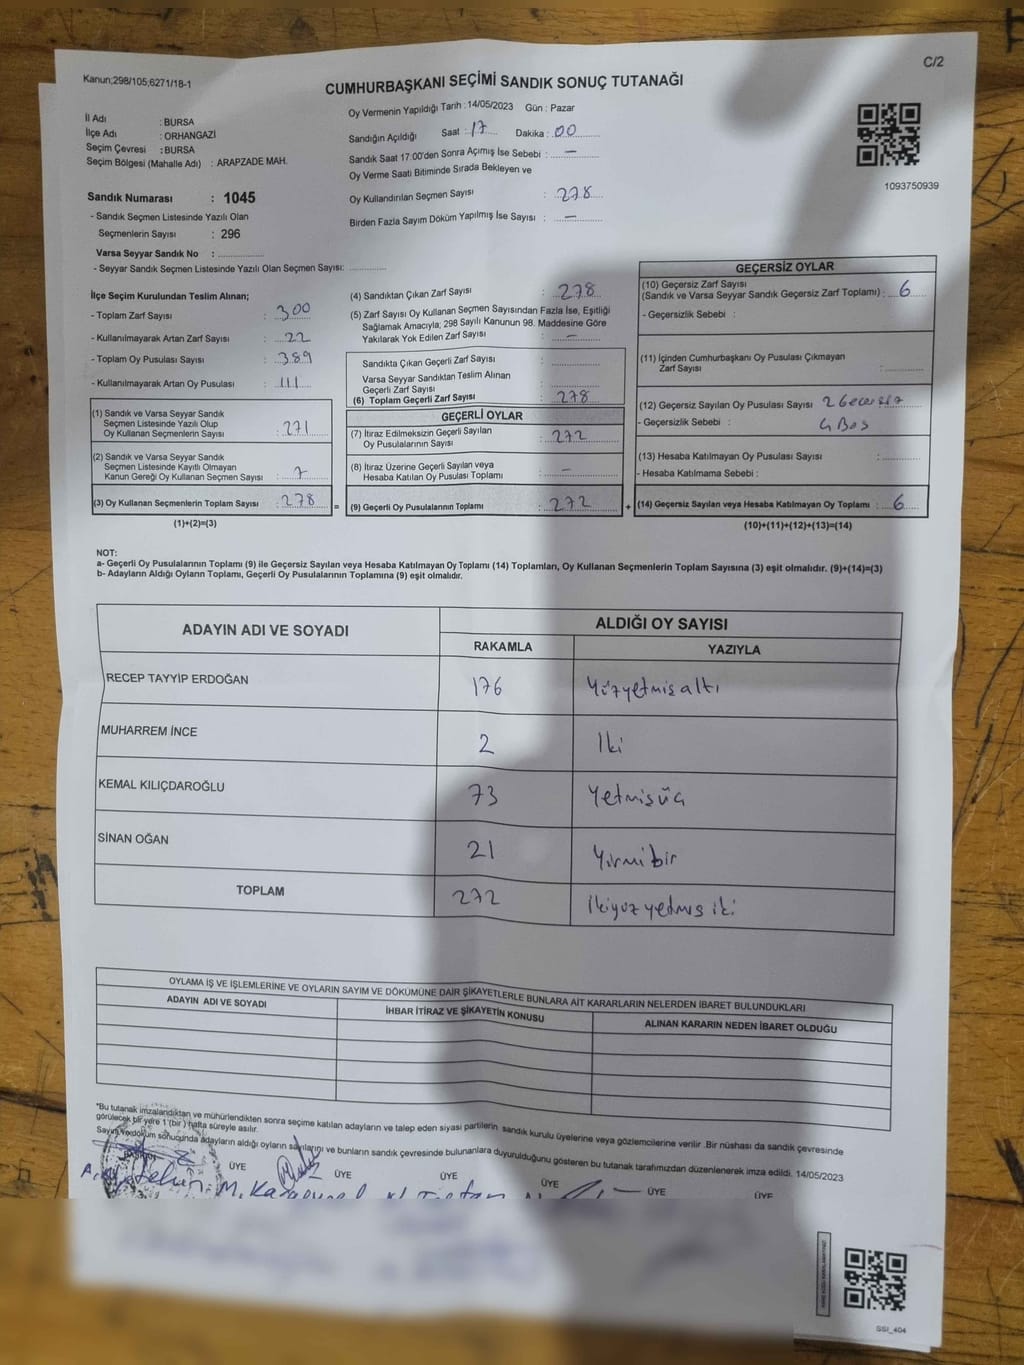 C/2
Kanun;298/105;6271/18-1
CUMHURBAŞKANI SEÇİMİ SANDIK SONUÇ TUTANAĞI
İl Adı : BURSA
İlçe Adı : ORHANGAZİ
Seçim Çevresi : BURSA
Seçim Bölgesi (Mahalle Adı) : ARAPZADE MAH.
Sandık Numarası : 1045
- Sandık Seçmen Listesinde Yazılı Olan
Seçmenlerin Sayısı : 296
Varsa Seyyar Sandık No :
- Seyyar Sandık Seçmen Listesinde Yazılı Olan Seçmen Sayısı:
Oy Vermenin Yapıldığı Tarih : 14/05/2023 Gün : Pazar
Sandığın Açıldığı Saat : 17 Dakika : 00
Sandık Saat 17:00'den Sonra Açımış İse Sebebi : —
Oy Verme Saati Bitiminde Sırada Bekleyen ve
Oy Kullandırılan Seçmen Sayısı : 278
Birden Fazla Sayım Döküm Yapılmış İse Sayısı : —
1093750939
İlçe Seçim Kurulundan Teslim Alınan;
- Toplam Zarf Sayısı : 300
- Kullanılmayarak Artan Zarf Sayısı : 22
- Toplam Oy Pusulası Sayısı : 389
- Kullanılmayarak Artan Oy Pusulası : 111
(1) Sandık ve Varsa Seyyar Sandık
Seçmen Listesinde Yazılı Olup
Oy Kullanan Seçmenlerin Sayısı : 271
(2) Sandık ve Varsa Seyyar Sandık
Seçmen Listesinde Kayıtlı Olmayan
Kanun Gereği Oy Kullanan Seçmen Sayısı : 7
(3) Oy Kullanan Seçmenlerin Toplam Sayısı : 278
(1)+(2)=(3)
(4) Sandıktan Çıkan Zarf Sayısı : 278
(5) Zarf Sayısı Oy Kullanan Seçmen Sayısından Fazla İse, Eşitliği
Sağlamak Amacıyla, 298 Sayılı Kanunun 98. Maddesine Göre
Yakılarak Yok Edilen Zarf Sayısı : —
Sandıkta Çıkan Geçerli Zarf Sayısı :
Varsa Seyyar Sandıktan Teslim Alınan
Geçerli Zarf Sayısı :
(6) Toplam Geçerli Zarf Sayısı : 278
GEÇERLİ OYLAR
(7) İtiraz Edilmeksizin Geçerli Sayılan
Oy Pusulalarının Sayısı : 272
(8) İtiraz Üzerine Geçerli Sayılan veya
Hesaba Katılan Oy Pusulası Toplamı : —
= (9) Geçerli Oy Pusulalarının Toplamı : 272
GEÇERSİZ OYLAR
(10) Geçersiz Zarf Sayısı
(Sandık ve Varsa Seyyar Sandık Geçersiz Zarf Toplamı) : 6
- Geçersizlik Sebebi :
(11) İçinden Cumhurbaşkanı Oy Pusulası Çıkmayan
Zarf Sayısı :
(12) Geçersiz Sayılan Oy Pusulası Sayısı : 2 Gecersiz
- Geçersizlik Sebebi : 4 Boş
(13) Hesaba Katılmayan Oy Pusulası Sayısı :
- Hesaba Katılmama Sebebi :
+ (14) Geçersiz Sayılan veya Hesaba Katılmayan Oy Toplamı : 6
(10)+(11)+(12)+(13)=(14)
NOT:
a- Geçerli Oy Pusulalarının Toplamı (9) ile Geçersiz Sayılan veya Hesaba Katılmayan Oy Toplamı (14) Toplamları, Oy Kullanan Seçmenlerin Toplam Sayısına (3) eşit olmalıdır. (9)+(14)=(3)
b- Adayların Aldığı Oyların Toplamı, Geçerli Oy Pusulalarının Toplamına (9) eşit olmalıdır.
ADAYIN ADI VE SOYADI
ALDIĞI OY SAYISI
RAKAMLA YAZIYLA
RECEP TAYYİP ERDOĞAN 176 Yüzyetmişaltı
MUHARREM İNCE 2 İki
KEMAL KILIÇDAROĞLU 73 Yetmişüç
SİNAN OĞAN 21 Yirmibir
TOPLAM 272 İkiyüz yetmiş iki
OYLAMA İŞ VE İŞLEMLERİNE VE OYLARIN SAYIM VE DÖKÜMÜNE DAİR ŞİKAYETLERLE BUNLARA AİT KARARLARIN NELERDEN İBARET BULUNDUKLARI
ADAYIN ADI VE SOYADI İHBAR İTİRAZ VE ŞİKAYETİN KONUSU ALINAN KARARIN NEDEN İBARET OLDUĞU
*Bu tutanak imzalandıktan ve mühürlendikten sonra seçime katılan adayların ve talep eden siyasi partilerin sandık kurulu üyelerine veya gözlemcilerine verilir. Bir nüshası da sandık çevresinde
görülecek bir yere 1 (bir) hafta süreyle asılır.
Sayım ve döküm sonucunda adayların aldığı oyların sayılarını ve bunların sandık çevresinde bulunanlara duyurulduğunu gösteren bu tutanak tarafımızdan düzenlenerek imza edildi. 14/05/2023
ÜYE ÜYE ÜYE ÜYE ÜYE ÜYE
SSİ_404